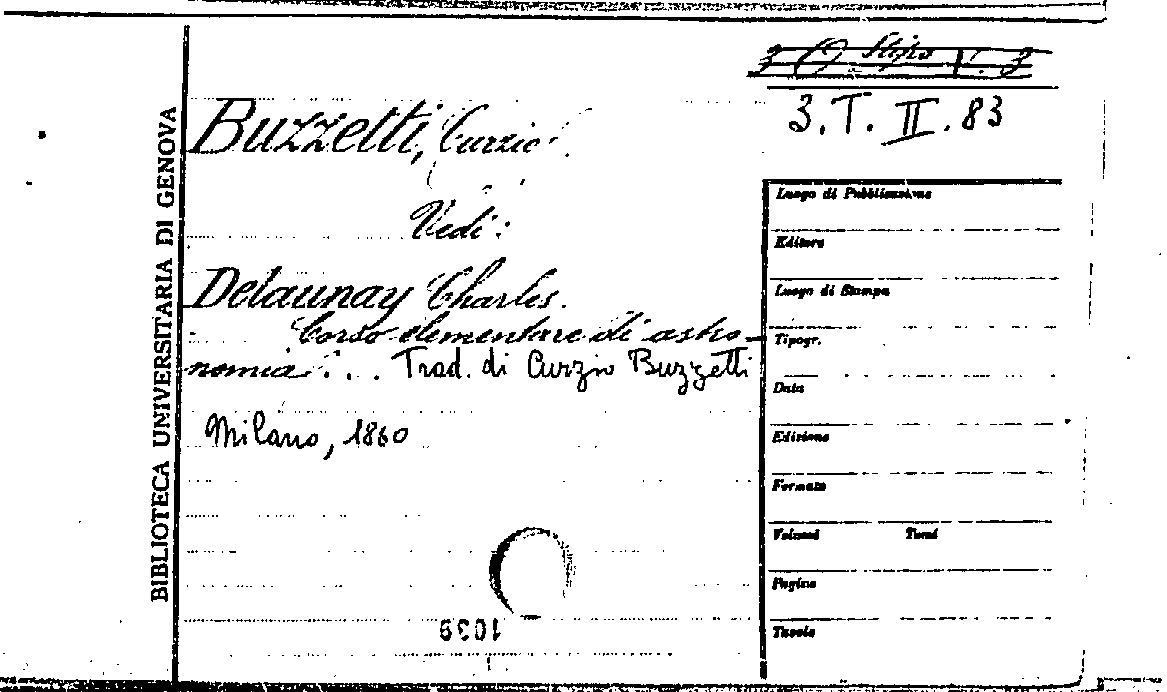 3 Q Stipo V. 3
3. T. II. 83
BIBLIOTECA UNIVERSITARIA DI GENOVA
Buzzetti, Curzio.
Vedi:
Delaunay Charles.
Corso elementare di astro-
nomia . . . Trad. di Curzio Buzzetti
Milano, 1860
Luogo di Pubblicazione
Editore
Luogo di Stampa
Tipogr.
Data
Edizione
Formato
Volumi Tomi
Pagine
Tavole
1039